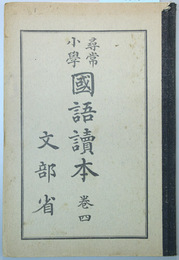 尋常
小學
國語讀本 巻四
文部省